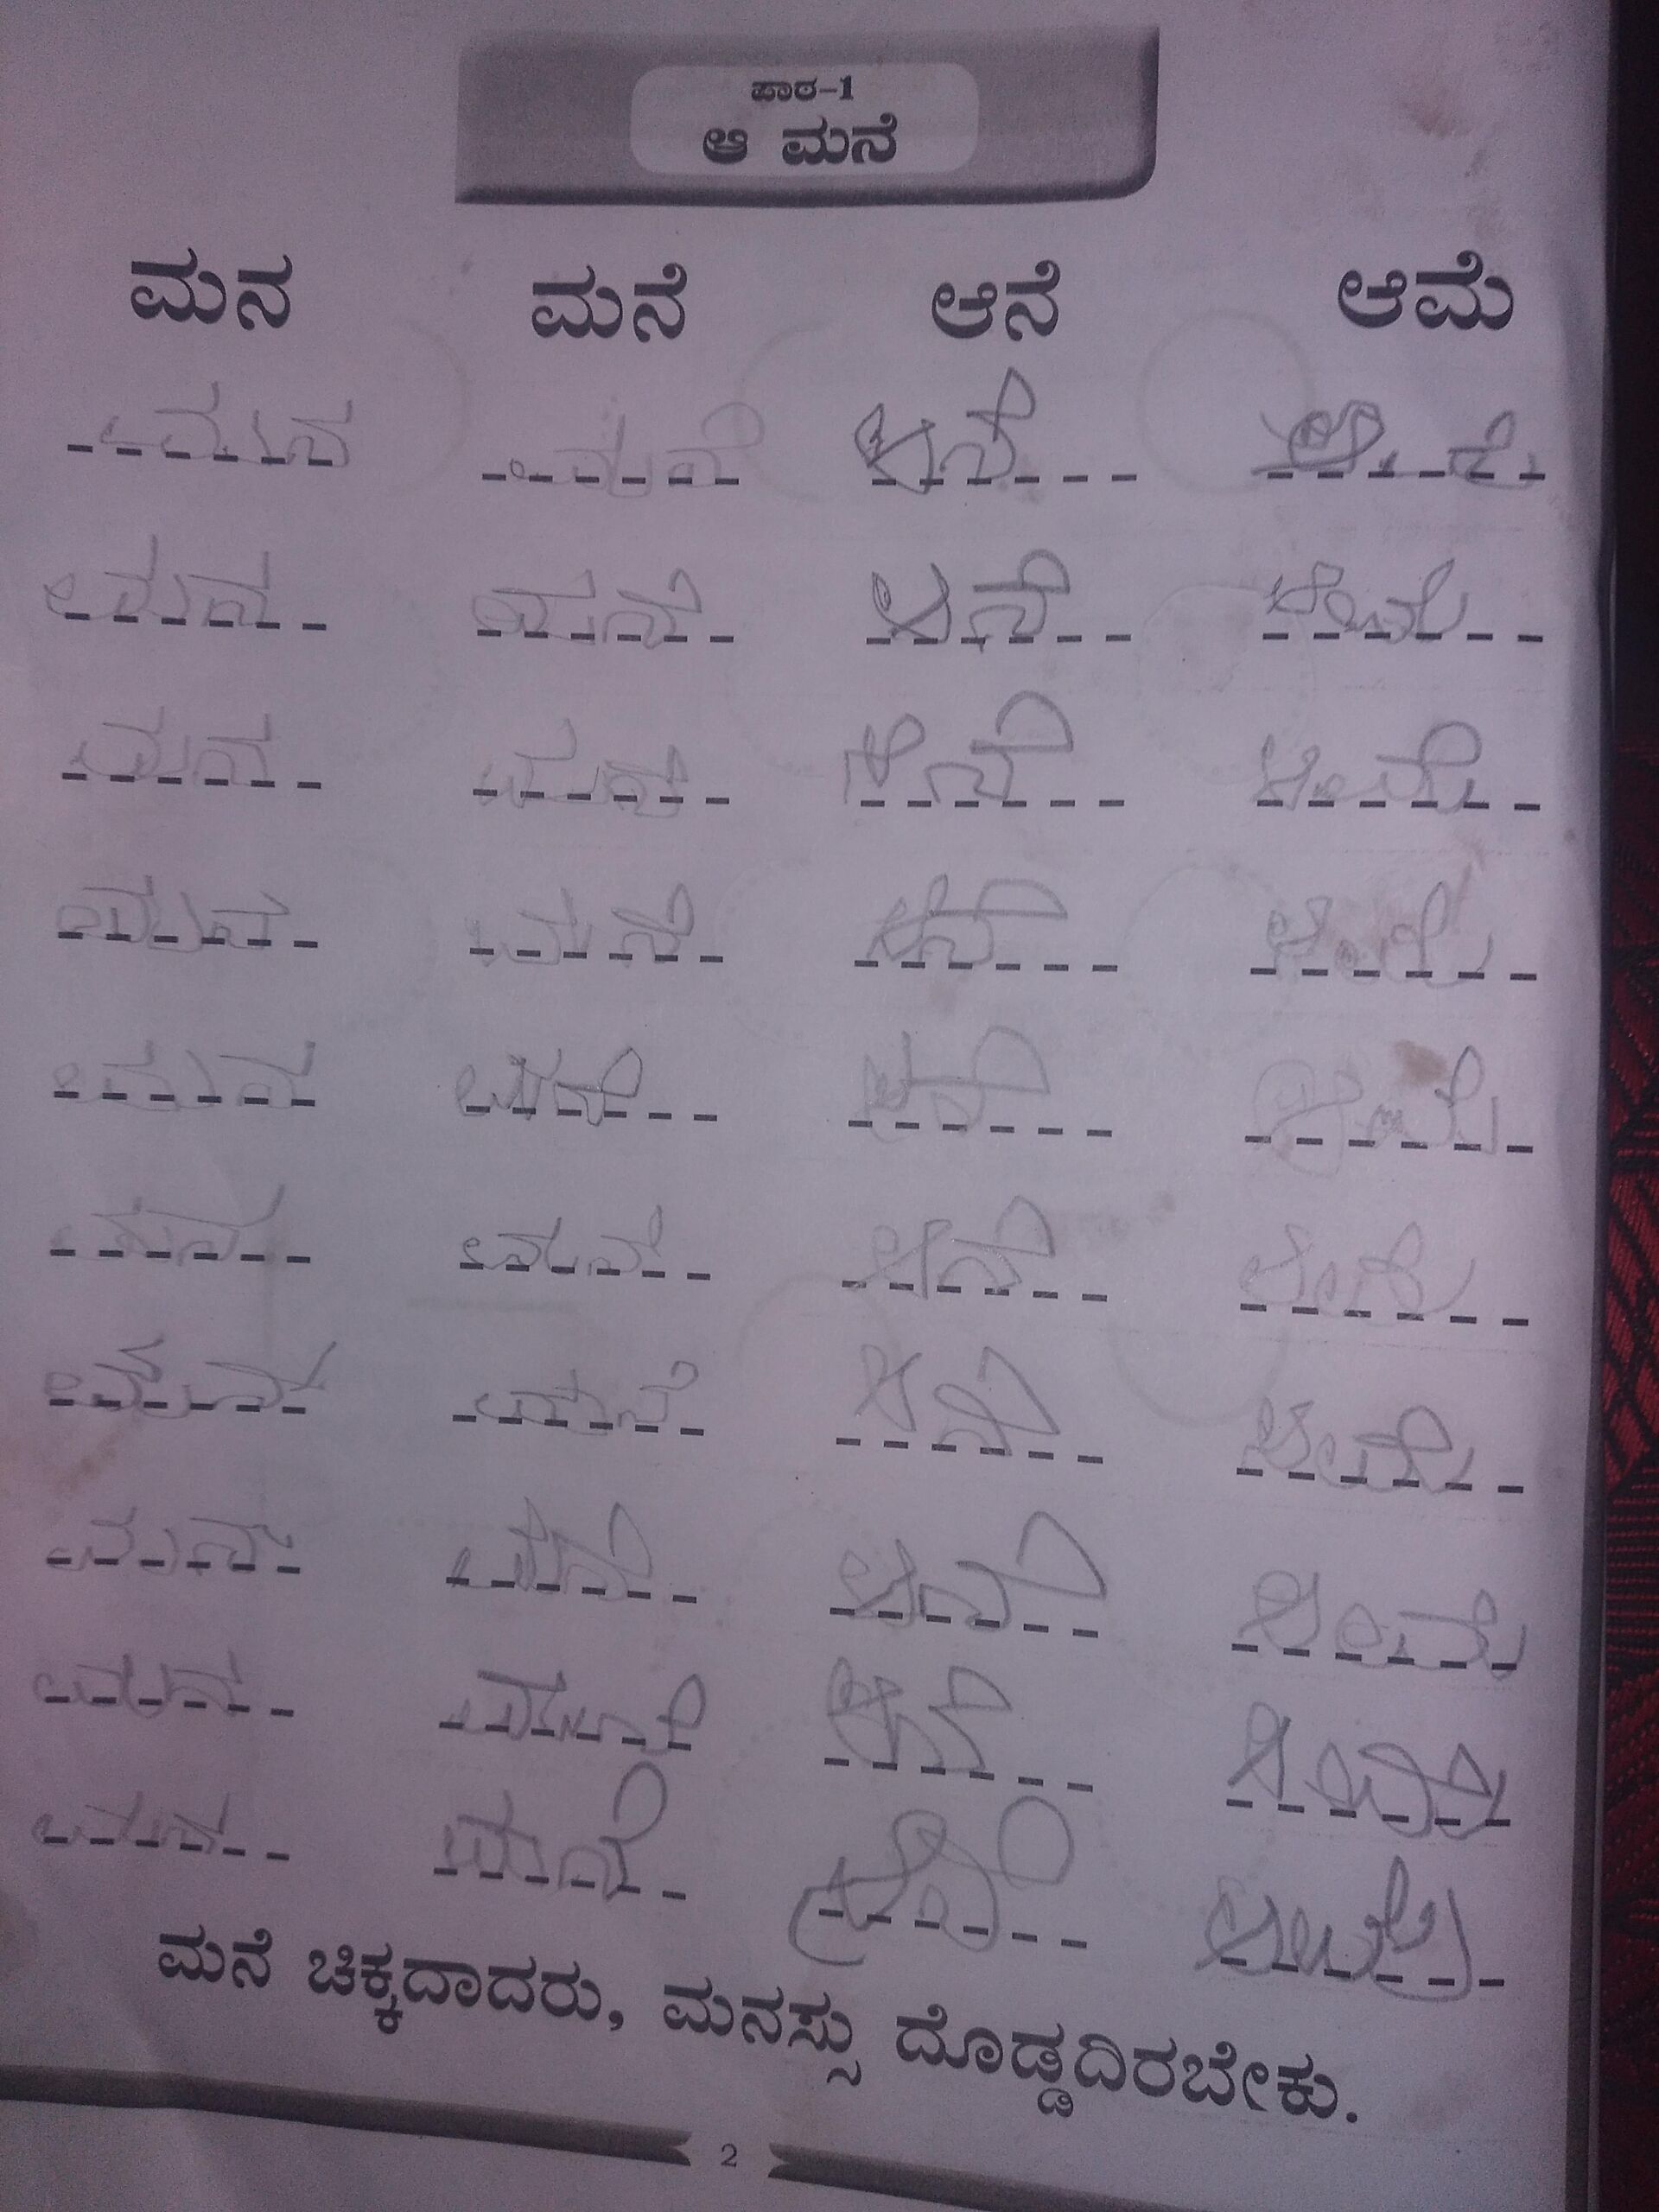 ಪಾಠ-1
ಆ ಮನೆ
ಮನ ಮನೆ ಆನೆ ಆಮೆ
ಮನ ಮನೆ ಆನೆ
ಮನ ಮನೆ ಆನೆ ಆಮೆ
ಮನ ಮನೆ ಆನೆ ಆಮೆ
ಮನ ಮನೆ ಆನೆ ಆಮೆ
ಮನ ಮನೆ ಆನೆ ಆಮೆ
ಮನ ಮನೆ ಆನೆ ಆಮೆ
ಮನ ಮನೆ ಆನೆ ಆಮೆ
ಮನ ಮನೆ ಆನೆ ಆಮೆ
ಮನ ಮನೆ ಆನೆ
ಮನ ಮನೆ
ಮನೆ ಚಿಕ್ಕದಾದರು, ಮನಸ್ಸು ದೊಡ್ಡದಿರಬೇಕು.
2